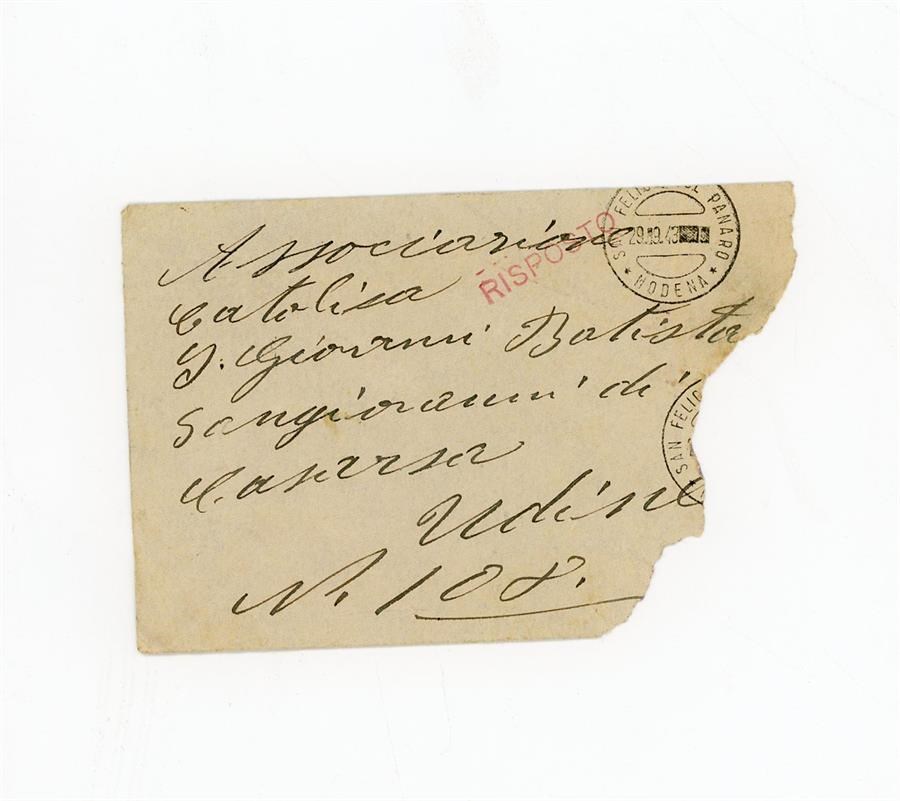 Associazione
Catolica
S. Giovanni Batista
Sangiovanni di
Casarsa
Udine
N. 108.
RISPOSTO
SAN FELICE PANARO
29.19.43
* MODENA *
* SAN FELIC